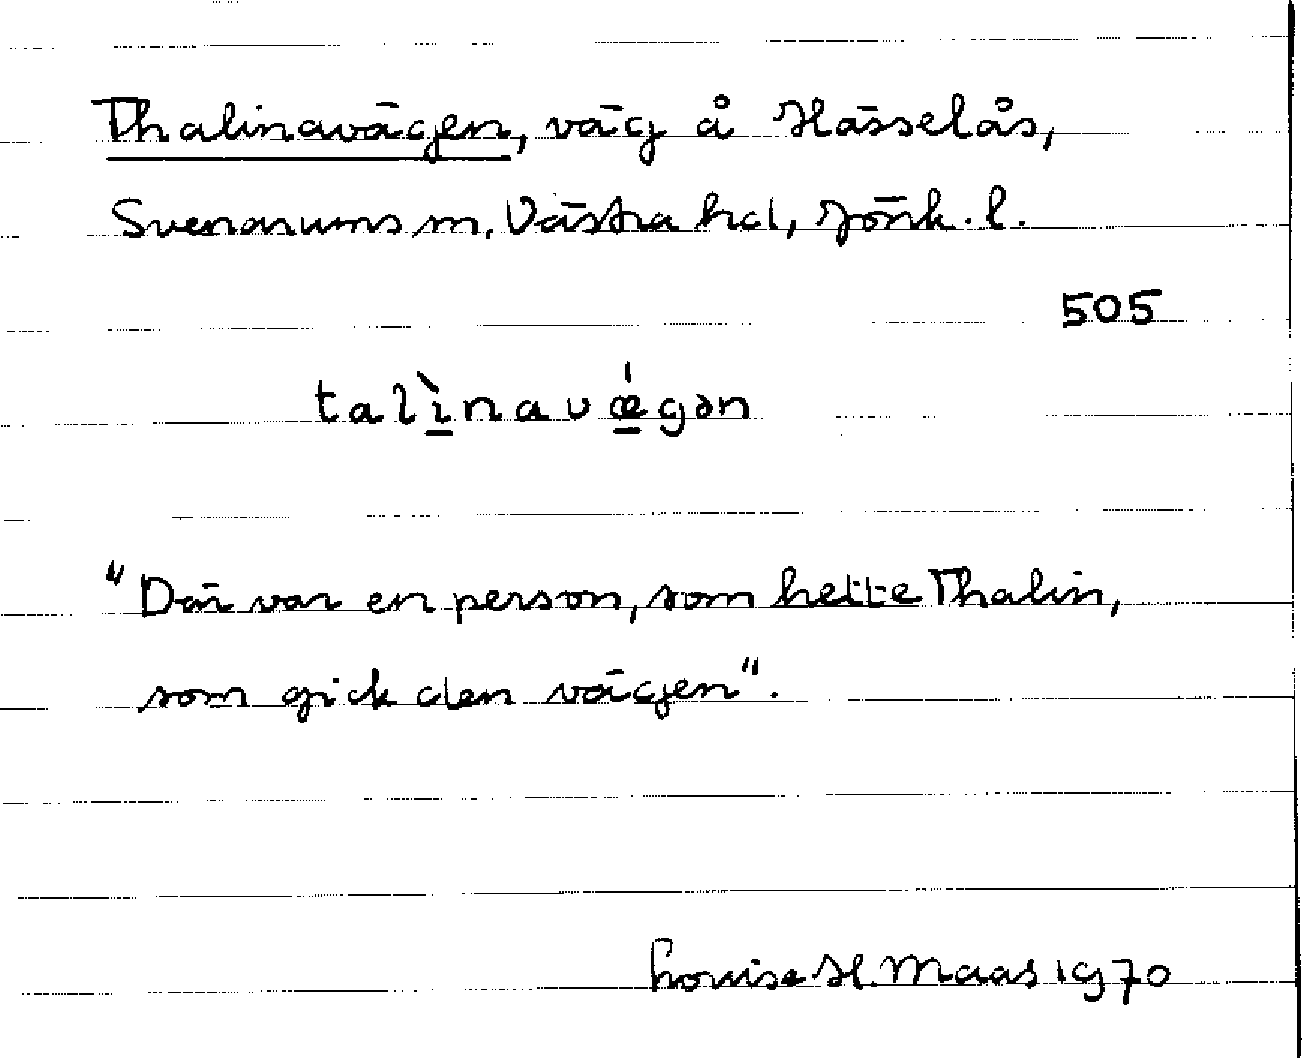 Thalinavägen, väg å Hässelås,
Svenarums sn. Västra hd, Jönk. l.
505
talìnavǽgən
"Där var en person, som hette Thalin,
som gick den vägen".
Louise H. Maas 1970